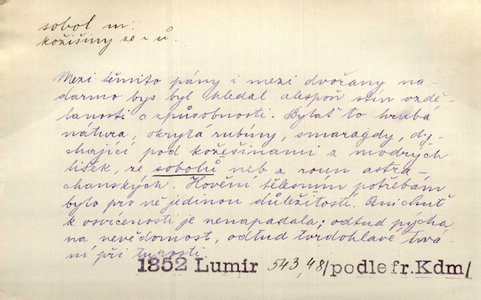 sobol m.
kožišiny ze s-ů.
Mezi těmito pány i mezi dvořany na
darmo bys byl hledal alespoň stín vzdě-
lanosti a způsobnosti. Bylať to hrubá
nátura, okrytá rubíny, smaragdy, dy-
chající pod kožešinami z modrých
lišek, ze sobolů neb z roun astra-
chanských. Hovění tělesním potřebám
bylo pro ně jedinou důležitostí. Ani chuť
k osvícenosti je nenapadala; odtud pýcha
na nevědomost, odtud tvrdohlavé trvá-
ní při tuposti.
1852 Lumír 543,48/podle fr. Kdm/